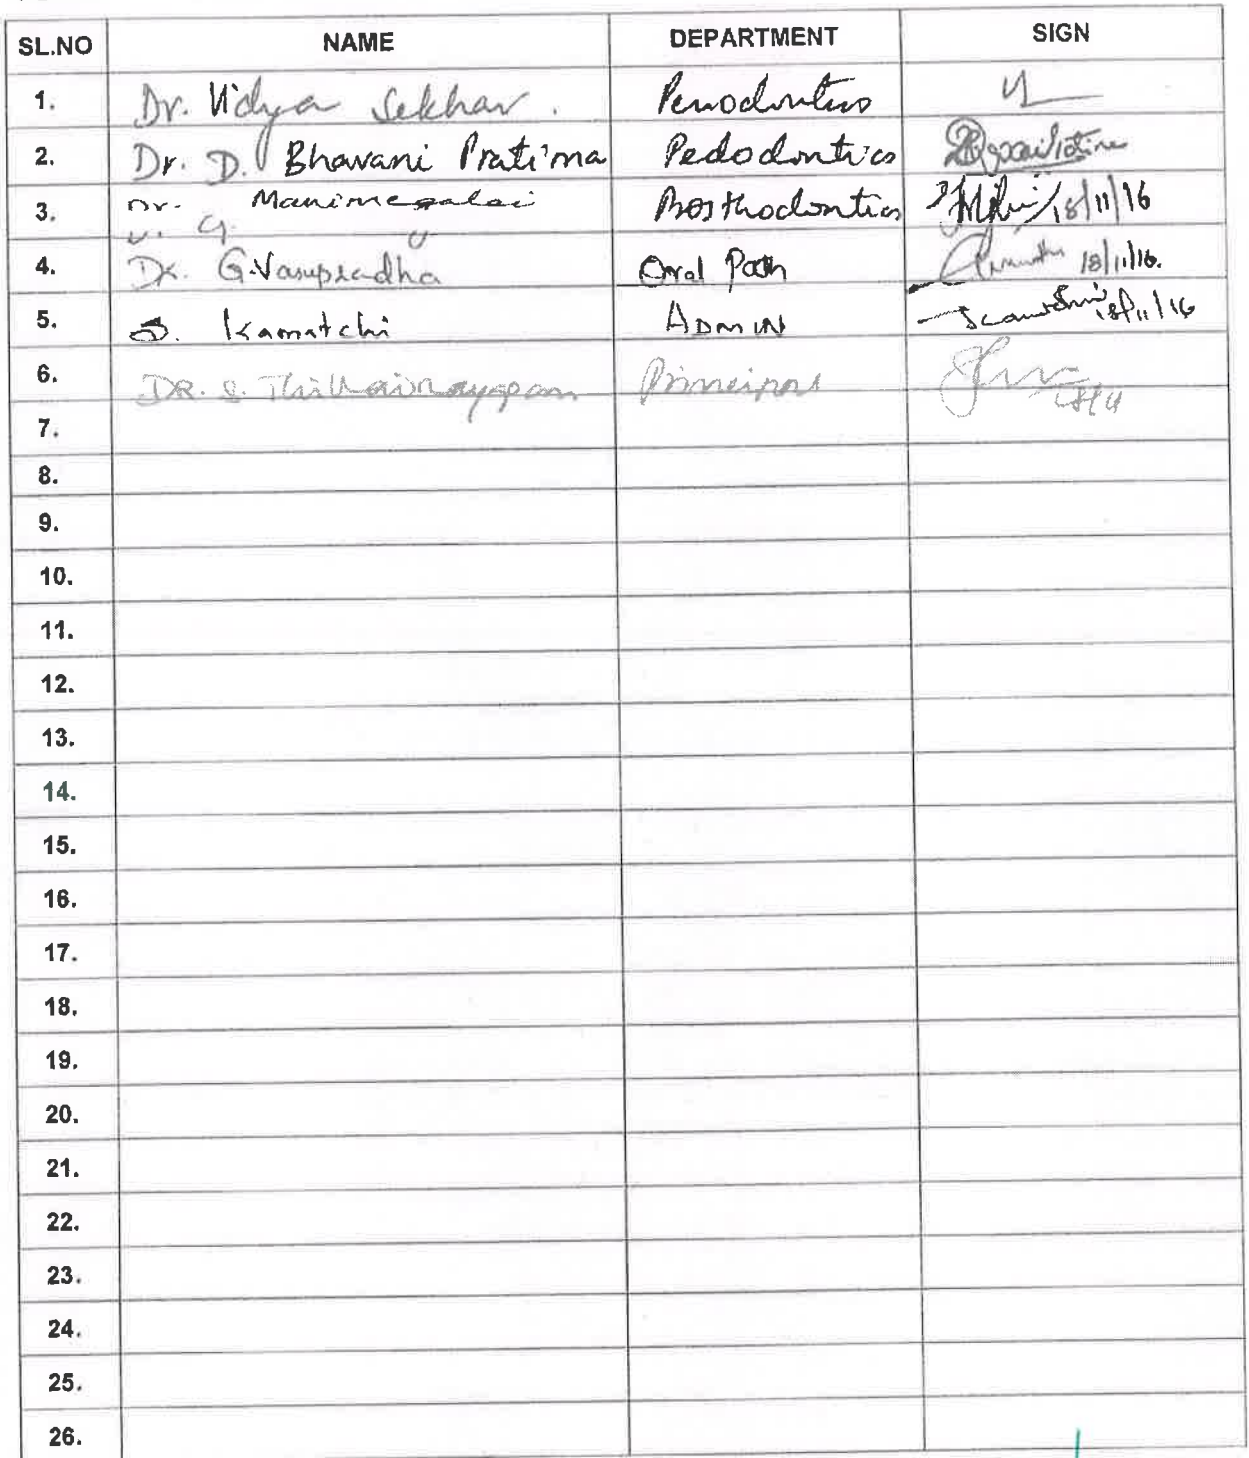 SL.NO NAME DEPARTMENT SIGN
1. Dr. Vidya Sekhar. Periodontics
2. Dr. D. Bhavani Pratima Pedodontics
3. Dr. Manimegalai Prosthodontics 18/11/16
V. G.
4. Dr. G. Vasupradha Oral Path 18/11/16.
5. Kamatchi ADMIN 18/11/16
6. DR. S. Thillainayagam Principal
7.
8.
9.
10.
11.
12.
13.
14.
15.
16.
17.
18.
19.
20.
21.
22.
23.
24.
25.
26.